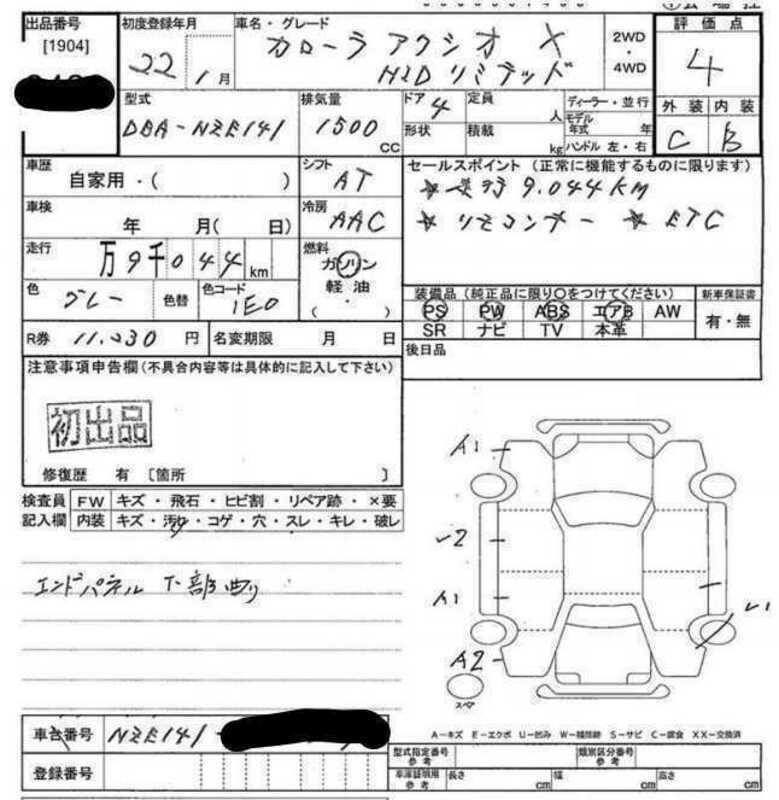 出品番号
[1904]
初度登録年月
22年1月
車名・グレード
カローラ アクシオ X
HID リミテッド
2WD
・
4WD
評価点
4
外装 内装
C B
型式
DBA-NZE141
排気量
1500
CC
ドア 4
形状
定員
人
積載
kg
ディーラー・並行
モデル
年式 年
ハンドル 左・右
車歴
自家用・( )
シフト
AT
セールスポイント (正常に機能するものに限ります)
☆ 走行 9.044KM
☆ リモコンキー ☆ ETC
車検
年 月( 日)
冷房
AAC
走行
万9千044km
燃料
ガソリン
軽油
・
( )
色
グレー
色替
色コード
1E0
装備品 (純正品に限り○をつけてください)
新車保証書
PS PW ABS エアB AW
有・無
SR ナビ TV 本革
R券 11.030円
名変期限 月 日
後日品
注意事項申告欄(不具合内容等は具体的に記入して下さい)
初出品
修復歴 有 〔箇所 〕
検査員
記入欄
FW キズ・飛石・ヒビ割・リペア跡・×要
内装 キズ・汚れ・コゲ・穴・スレ・キレ・破レ
エンドパネル 下部曲り
A1
A1
A2
スペア
車台番号 NZE141-
登録番号
A-キズ E-エクボ U-凹み W-補修跡 S-サビ C-腐食 XX-交換済
型式指定番号
参考
類別区分番号
参考
車庫証明用
参考
長さ cm
幅 cm
高さ cm